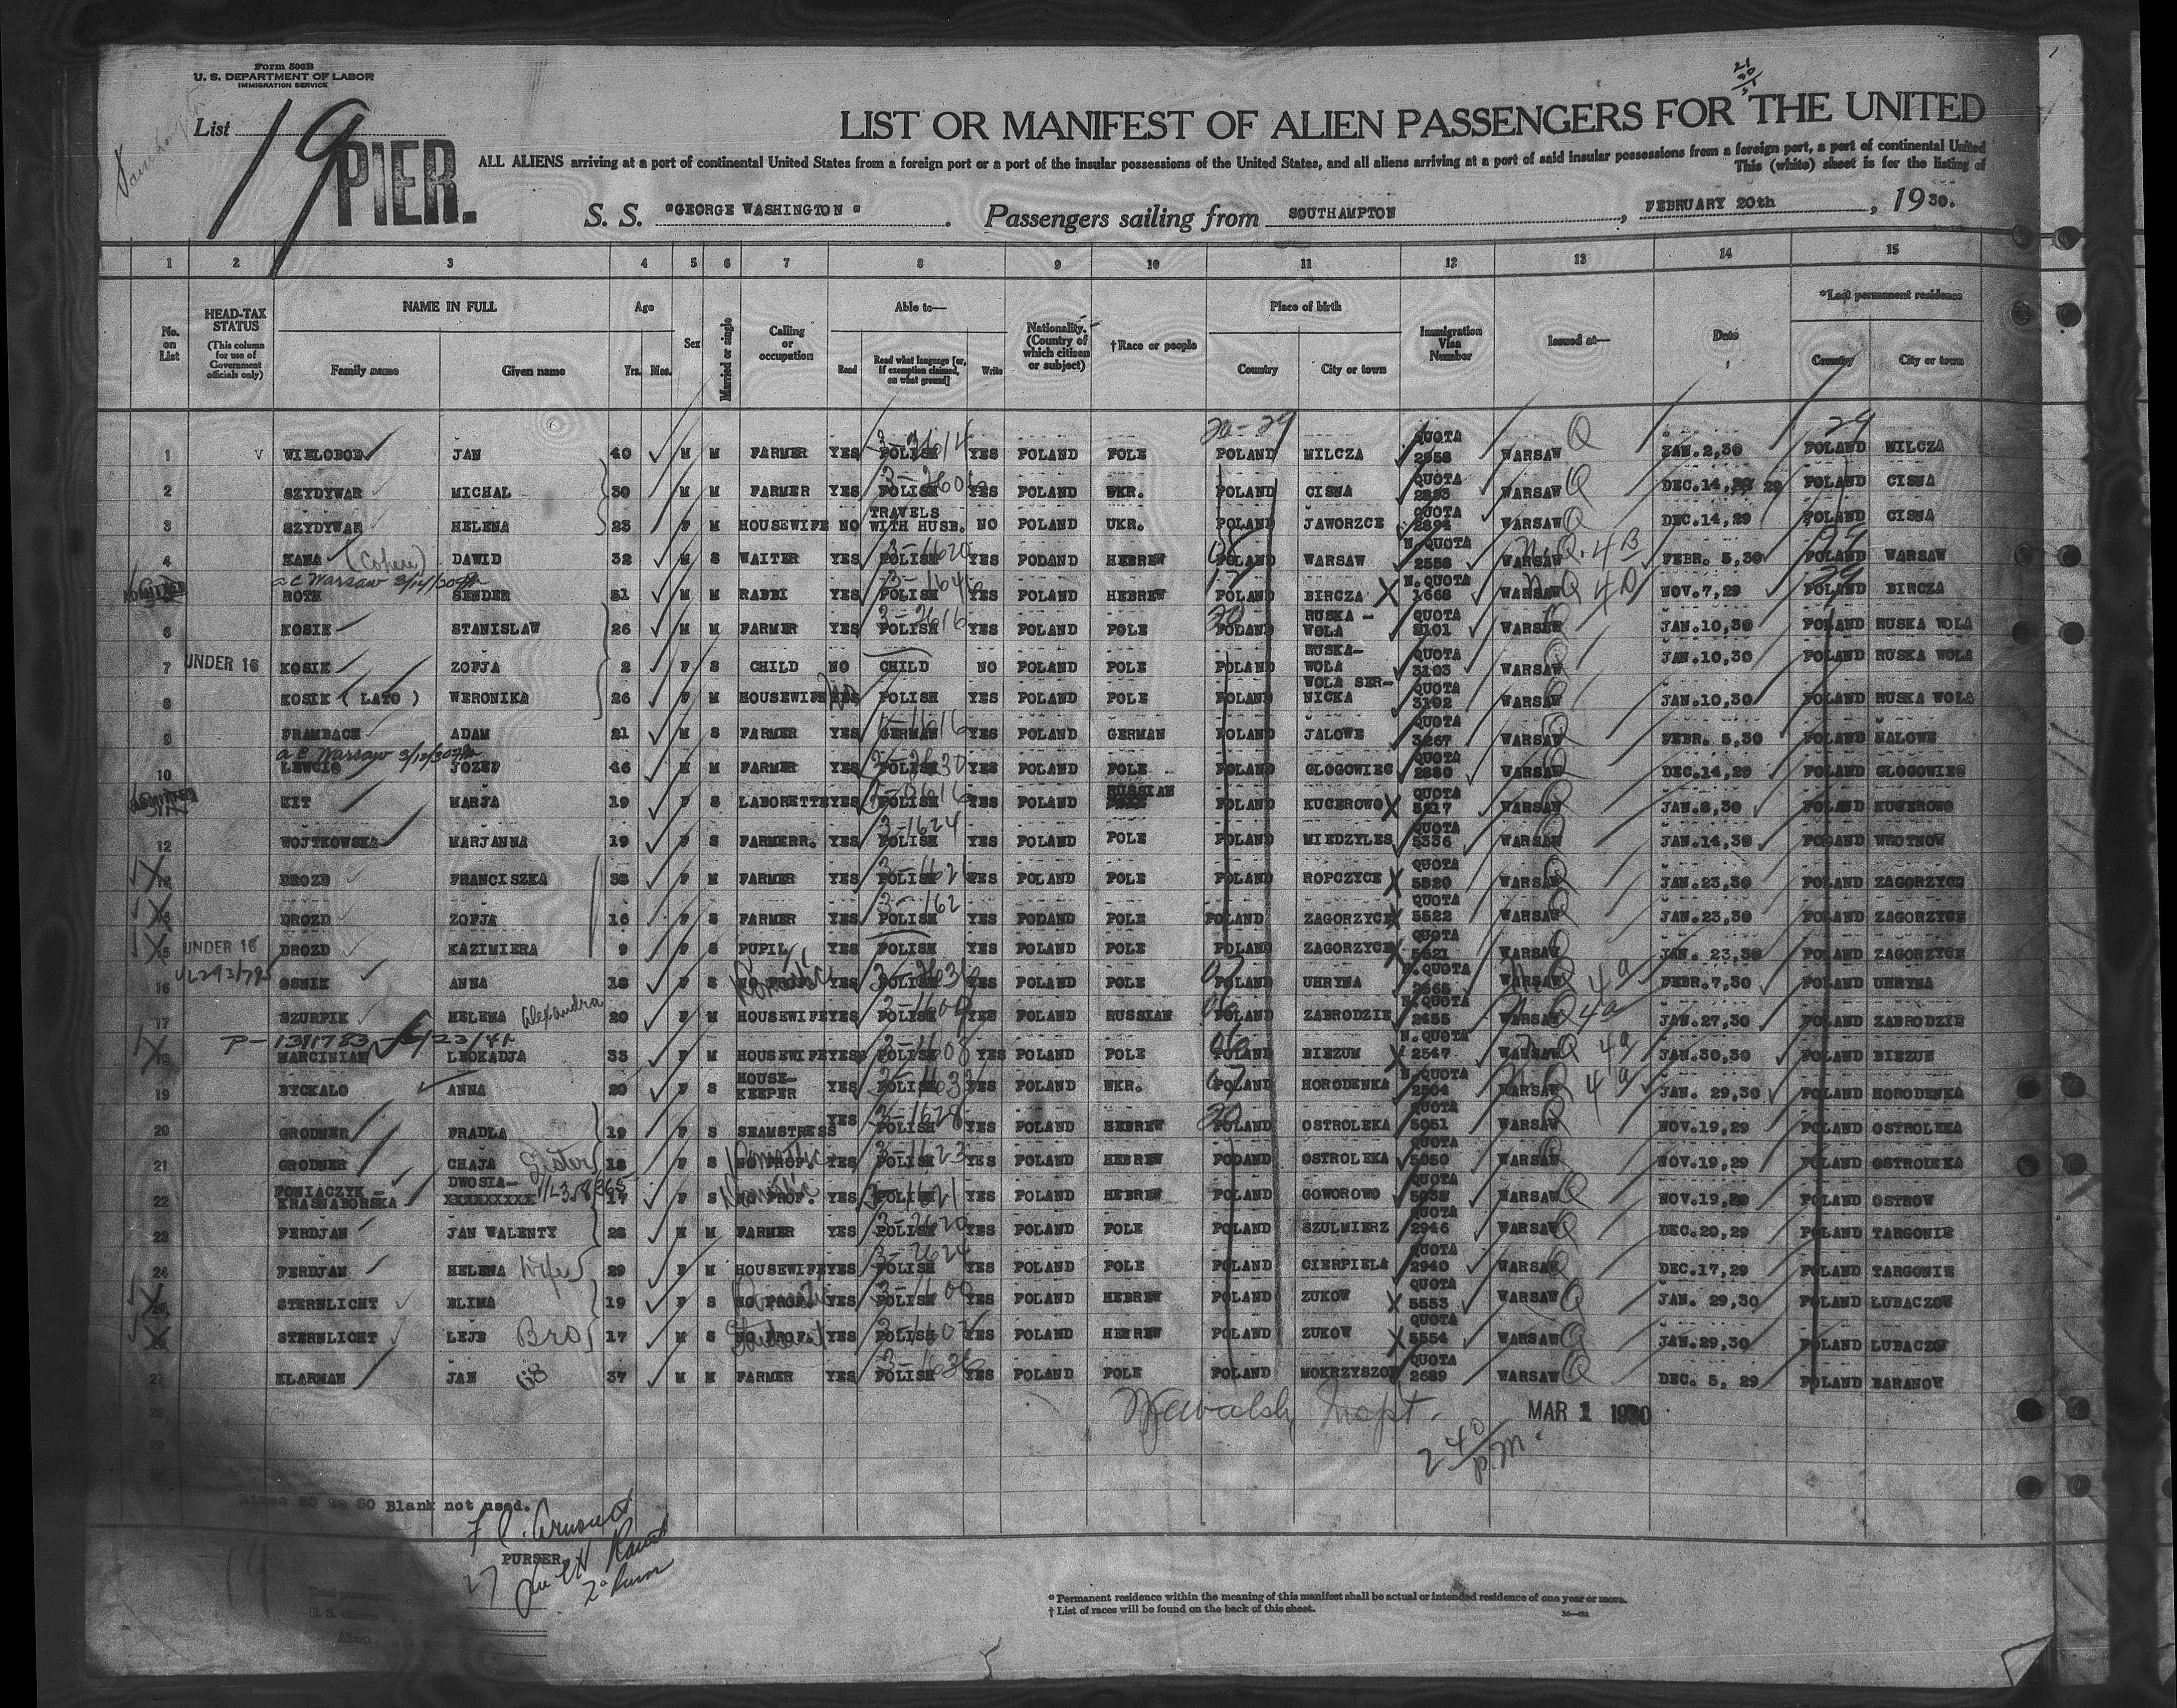 Form 500B
U. S. DEPARTMENT OF LABOR
IMMIGRATION SERVICE
List 19
PIER.
LIST OR MANIFEST OF ALIEN PASSENGERS FOR THE UNITED
ALL ALIENS arriving at a port of continental United States from a foreign port or a port of the insular possessions of the United States, and all aliens arriving at a port of said insular possessions from a foreign port, a port of continental United
This (white) sheet is for the listing of
S. S. "GEORGE WASHINGTON". Passengers sailing from SOUTHAMPTON, FEBRUARY 20th, 1930.
1 2 3 4 5 6 7 8 9 10 11 12 13 14 15
No. on List
HEAD-TAX STATUS (This column for use of Government officials only)
NAME IN FULL Family name Given name
Age Yrs. Mos.
Sex
Married or single
Calling or occupation
Able to— Read Read what language [or, if exemption claimed, on what ground] Write
Nationality. (Country of which citizen or subject)
†Race or people
Place of birth Country City or town
Immigration Visa Number
Issued at—
Date
*Last permanent residence Country City or town
20-29 29
1 WIELOBOB JAN 40 M M FARMER YES POLISH YES POLAND POLE POLAND MILCZA QUOTA 2958 WARSAW Q JAN.2,30 POLAND MILCZA
2 SZYDYWAR MICHAL 30 M M FARMER YES POLISH YES POLAND UKR. POLAND CISNA QUOTA 2893 WARSAW Q DEC.14, 29 POLAND CISNA
3 SZYDYWAR HELENA 23 F M HOUSEWIFE NO TRAVELS WITH HUSB. NO POLAND UKR. POLAND JAWORZCE QUOTA 2894 WARSAW Q DEC.14,29 POLAND CISNA
4 KANA (Cohen) DAWID 32 M S WAITER YES POLISH YES PODAND HEBREW POLAND WARSAW N.QUOTA 2558 WARSAW N.Q. 4B FEBR. 5,30 POLAND WARSAW
ADMITTED ROTH SENDER 51 M M RABBI YES POLISH YES POLAND HEBREW POLAND BIRCZA N.QUOTA 1668 WARSAW NQ 4D NOV.7,29 POLAND BIRCZA
6 KOSIK STANISLAW 26 M M FARMER YES POLISH YES POLAND POLE PODAND RUSKA - WOLA QUOTA 3101 WARSEW Q JAN.10,30 POLAND RUSKA WOLA
7 UNDER 16 KOSIK ZOFJA 2 F S CHILD NO CHILD NO POLAND POLE POLAND RUSKA- WOLA QUOTA 3103 WARSAW Q JAN.10,30 POLAND RUSKA WOLA
8 KOSIK ( LATO ) WERONIKA 26 F M HOUSEWIFE YES POLISH YES POLAND POLE POLAND WOLA SER- NICKA QUOTA 3102 WARSAW Q JAN.10,30 POLAND RUSKA WOLA
9 FRAMBACH ADAM 21 M S FARMER YES GERMAN YES POLAND GERMAN POLAND JALOWE QUOTA 3267 WARSAW Q FEBR. 5,30 POLAND HALOWE
10 LEWCIO JOZEF 46 M M FARMER YES POLISH YES POLAND POLE POLAND GLOGOWIEC QUOTA 2880 WARSAW Q DEC.14,29 POLAND GLOGOWIEC
ADMITTED KIT MARJA 19 F S LABORETTE YES POLISH YES POLAND RUSSIAN POLAND KUCEROWO QUOTA WARSAW Q JAN.8,30 POLAND KUCEROWO
12 WOJTKOWSKA MARJANNA 19 F S FARMERR. YES POLISH YES POLAND POLE POLAND MIEDZYLES QUOTA 5336 WARSAW Q JAN.14,30 POLAND WROTNOW
13 DROZD FRANCISZKA 38 F M FARMER YES POLISH YES POLAND POLE POLAND ROPCZYCE QUOTA 5520 WARSAW Q JAN.23,30 POLAND ZAGORZYCE
14 DROZD ZOFJA 16 F S FARMER YES POLISH YES PODAND POLE POLAND ZAGORZYCE QUOTA 5522 WARSAW Q JAN.23,30 POLAND ZAGORZYCE
15 UNDER 16 DROZD KAZIMIERA 9 F S PUPIL YES POLISH YES POLAND POLE POLAND ZAGORZYCE QUOTA 5521 WARSAW Q JAN. 23,30 POLAND ZAGORZYCE
16 OSNIK ANNA 18 F S NO PROF. Domestic YES POLISH YES POLAND POLE POLAND UHRYNA N.QUOTA 2665 WARSAW NQ 4a FEBR.7,30 POLAND UHRYNA
17 SZURPIK HELENA Alexandra 20 F M HOUSEWIFE YES POLISH YES POLAND RUSSIAN POLAND ZABRODZIE N.QUOTA 2455 WARSAW Q 4a JAN.27,30 POLAND ZABRODZIE
18 MARCINIAK LEOKADJA 33 F M HOUSEWIFE YES POLISH YES POLAND POLE POLAND BIEZUM N.QUOTA 2547 WARSAW NQ 4a JAN.30,30 POLAND BIEZUN
19 BYCKALO ANNA 20 F S HOUSE- KEEPER YES POLISH YES POLAND UKR. POLAND HORODENKA N.QUOTA 2504 WARSAW NQ 4a JAN. 29,30 POLAND HORODENKA
20 GRODNER FRADLA 19 F S SEAMSTRESS YES POLISH YES POLAND HEBREW POLAND OSTROLEKA QUOTA 5051 WARSAW Q NOV.19,29 POLAND OSTROLEKA
21 GRODNER CHAJA Sister 18 F S NO PROF. Domestic YES POLISH YES POLAND HEBREW PODAND OSTROLEKA QUOTA 5050 WARSAW Q NOV.19,29 POLAND OSTROLEKA
22 PONIACZYK - KRASNABORSKA DWOSIA- XXXXXXXXX 17 F S NO PROF. Domestic YES POLISH YES POLAND HEBREW POLAND GOWOROWO QUOTA 5038 WARSAW Q NOV.19,29 POLAND OSTROW
23 FERDJAN JAN WALENTY 28 M M FARMER YES POLISH YES POLAND POLE POLAND SZULMIERZ QUOTA 2946 WARSAW Q DEC.20,29 POLAND TARGONIE
24 FERDJAN HELENA Wife 29 F M HOUSEWIFE YES POLISH YES POLAND POLE POLAND CIERPIELA QUOTA 2940 WARSAW Q DEC.17,29 POLAND TARGONIE
25 STERNLICHT BLIMA 19 F S NO PROF. Domestic YES POLISH YES POLAND HEBREW POLAND ZUKOW QUOTA 5553 WARSAW Q JAN. 29,30 POLAND LUBACZOW
26 STERNLICHT LEJB Bro 17 M S NO PROF. Student YES POLISH YES POLAND HEBREW POLAND ZUKOW QUOTA 5554 WARSAW Q JAN.29,30 POLAND LUBACZOW
27 KLARMAN JAN 68 37 M M FARMER YES POLISH YES POLAND POLE POLAND MOKRZYSZOW QUOTA 2689 WARSAW Q DEC. 5, 29 POLAND BARANOW
Inspt. MAR 1 1930
2 40 p.m.
Blank not used.
PURSER.
27
* Permanent residence within the meaning of this manifest shall be actual or intended residence of one year or more.
† List of races will be found on the back of this sheet.